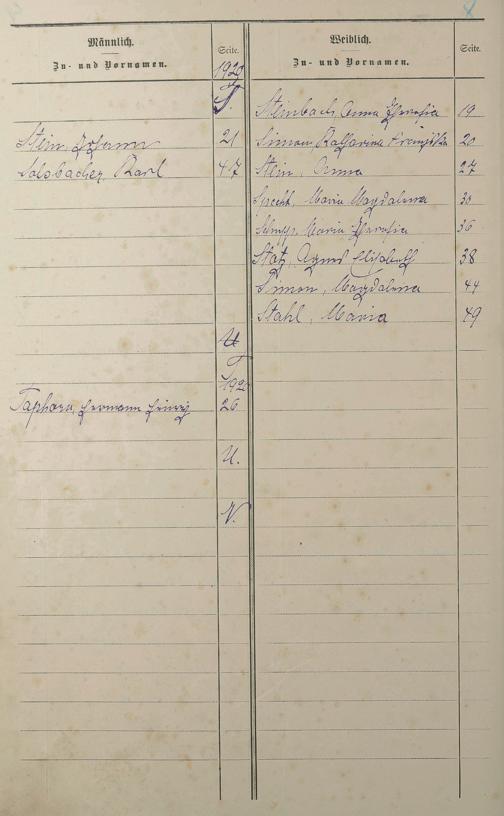 Männlich.
Seite.
Weiblich.
Seite.
Zu- und Vornamen.
Zu- und Vornamen.
1920
S.
Steinbach, Anna 19
Stein, Johann 21
Simon, Katharina Franziska 20
Solsbacher, Karl 47
Stein, Anna 27
Specht, Maria Magdalena 30
Maria 36
Statz, Agnes Elisabeth 38
Simon, Magdalena 44
Stahl, Maria 49
T
1920
Taphorn, Hermann 26
U.
V.